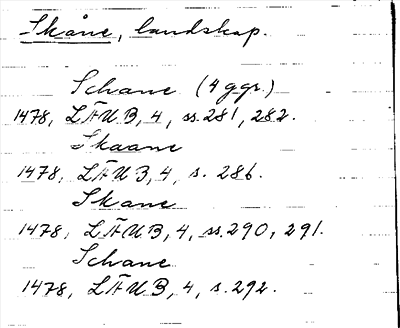 Skåne, landskap.
Schane (4 ggr.)
1478, LÄUB, 4, ss. 281, 282.
Skaane
1478, LÄUB, 4, s. 286.
Skane
1478, LÄUB, 4, ss. 290, 291.
Schane
1478, LÄUB, 4, s. 292.